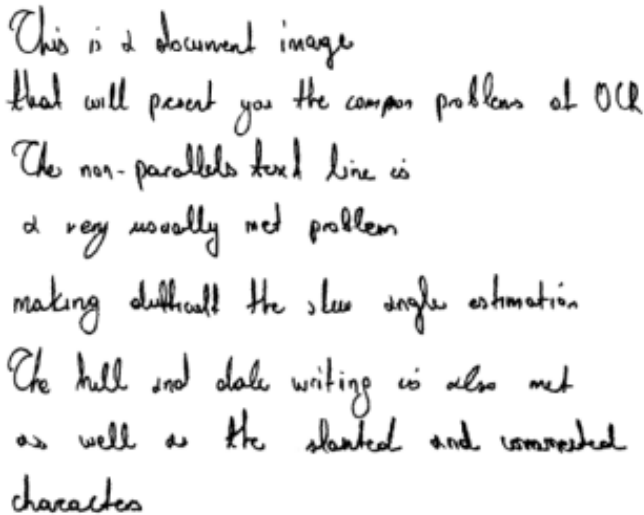 This is a document image
that will present you the common problems of OCR
The non-parallels text line is
a very usually met problem
making difficult the skew angle estimation
The hill and dale writing is also met
as well as the slanted and connected
characters